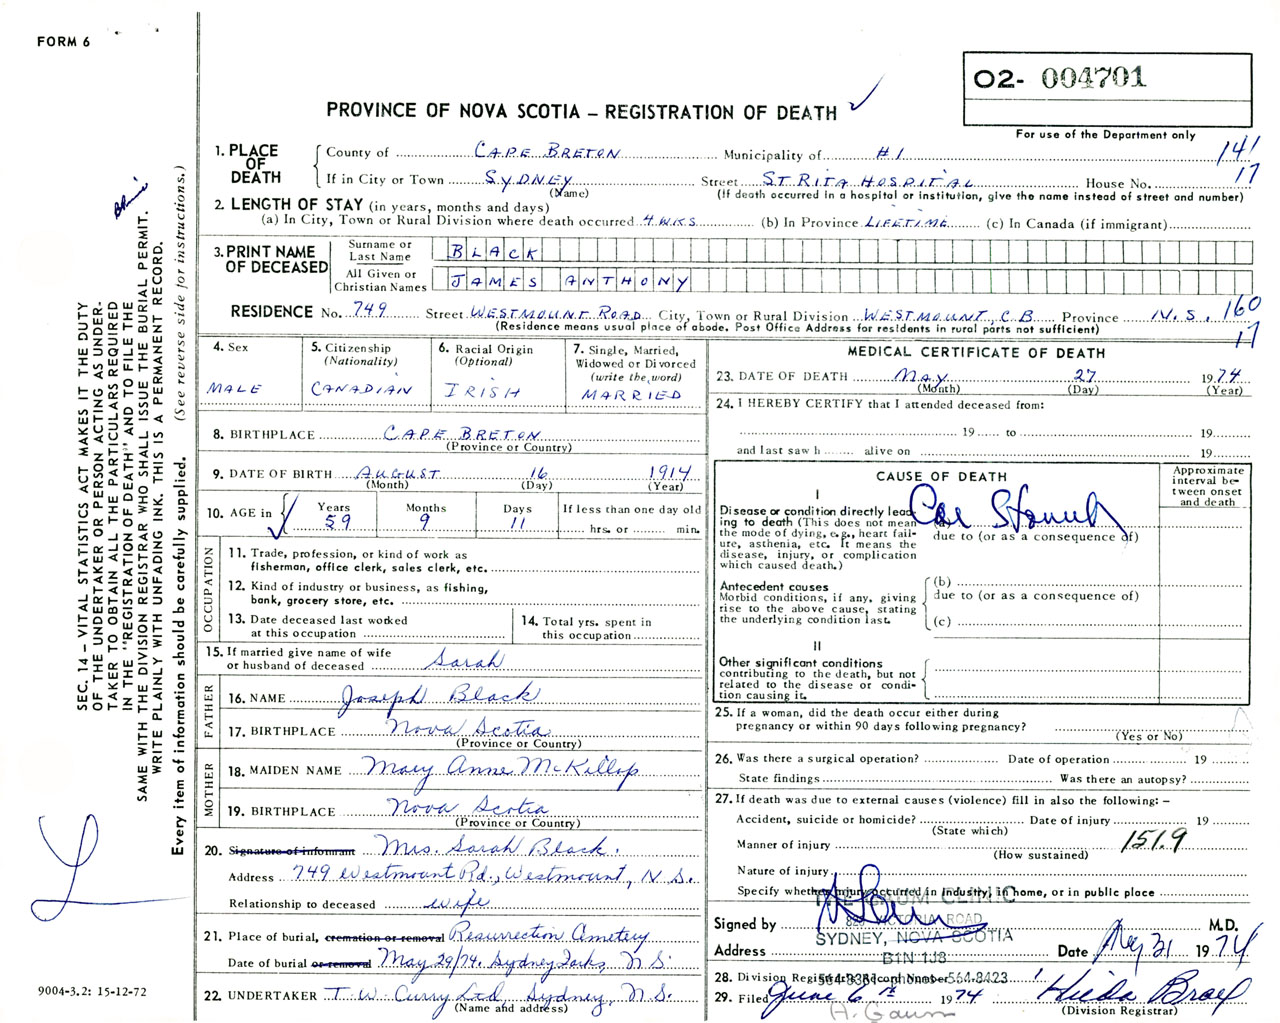 FORM 6
O2- 004701
PROVINCE OF NOVA SCOTIA – REGISTRATION OF DEATH
For use of the Department only
1. PLACE OF DEATH
County of CAPE BRETON Municipality of #1 141
If in City or Town SYDNEY Street ST RITA HOSPITAL House No. 17
(Name) (If death occurred in a hospital or institution, give the name instead of street and number)
2. LENGTH OF STAY (in years, months and days)
(a) In City, Town or Rural Division where death occurred 4 WKS (b) In Province LIFETIME (c) In Canada (if immigrant)
3. PRINT NAME OF DECEASED
Surname or Last Name BLACK
All Given or Christian Names JAMES ANTHONY
RESIDENCE No. 749 Street WESTMOUNT ROAD City, Town or Rural Division WESTMOUNT, C.B. Province N.S. 160
(Residence means usual place of abode. Post Office Address for residents in rural parts not sufficient) 17
4. Sex
MALE
5. Citizenship
(Nationality)
CANADIAN
6. Racial Origin
(Optional)
IRISH
7. Single, Married,
Widowed or Divorced
(write the word)
MARRIED
8. BIRTHPLACE CAPE BRETON
(Province or Country)
9. DATE OF BIRTH AUGUST 16 1914
(Month) (Day) (Year)
10. AGE in
Years Months Days If less than one day old
59 9 11 hrs. or min.
OCCUPATION
11. Trade, profession, or kind of work as
fisherman, office clerk, sales clerk, etc.
12. Kind of industry or business, as fishing,
bank, grocery store, etc.
13. Date deceased last worked
at this occupation
14. Total yrs. spent in
this occupation
15. If married give name of wife
or husband of deceased Sarah
FATHER
16. NAME Joseph Black
17. BIRTHPLACE Nova Scotia
(Province or Country)
MOTHER
18. MAIDEN NAME Mary Anne McKillop
19. BIRTHPLACE Nova Scotia
(Province or Country)
20. Signature of informant Mrs. Sarah Black.
Address 749 Westmount Rd., Westmount, N.S.
Relationship to deceased wife
21. Place of burial, cremation or removal Resurrection Cemetery
Date of burial or removal May 29/74. Sydney Forks, N.S.
22. UNDERTAKER T. W. Curry Ltd Sydney, N.S.
(Name and address)
MEDICAL CERTIFICATE OF DEATH
23. DATE OF DEATH MAY 27 1974
(Month) (Day) (Year)
24. I HEREBY CERTIFY that I attended deceased from:
19 to 19
and last saw h alive on 19
CAUSE OF DEATH
Approximate
interval be-
tween onset
and death
I
Disease or condition directly lead-
ing to death (This does not mean
the mode of dying, e.g., heart fail-
ure, asthenia, etc. It means the
disease, injury, or complication
which caused death.)
(a) Car Stomach
due to (or as a consequence of)
Antecedent causes
Morbid conditions, if any, giving
rise to the above cause, stating
the underlying condition last.
(b)
due to (or as a consequence of)
(c)
II
Other significant conditions
contributing to the death, but not
related to the disease or condi-
tion causing it.
25. If a woman, did the death occur either during
pregnancy or within 90 days following pregnancy?
(Yes or No)
26. Was there a surgical operation? Date of operation 19
State findings Was there an autopsy?
27. If death was due to external causes (violence) fill in also the following: –
Accident, suicide or homicide? Date of injury 19
(State which)
Manner of injury 151.9
(How sustained)
Nature of injury
Specify whether injury occurred in industry, in home, or in public place
CLINIC
Signed by M.D.
ROAD
SYDNEY, NOVA SCOTIA
Address Date May 31 1974
B1N 1J8
28. Division Registrar Record Number
564-8423
29. Filed June 6th 1974 Hilda
(Division Registrar)
SEC. 14 – VITAL STATISTICS ACT MAKES IT THE DUTY
OF THE UNDERTAKER OR PERSON ACTING AS UNDER-
TAKER TO OBTAIN ALL THE PARTICULARS REQUIRED
IN THE "REGISTRATION OF DEATH" AND TO FILE THE
SAME WITH THE DIVISION REGISTRAR WHO SHALL ISSUE THE BURIAL PERMIT.
WRITE PLAINLY WITH UNFADING INK. THIS IS A PERMANENT RECORD.
Every item of information should be carefully supplied. (See reverse side for instructions.)
9004-3.2: 15-12-72